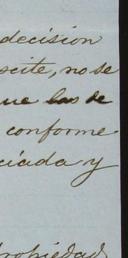 decision
scite, no se
ue las de
conforme
ciada y
propiedad